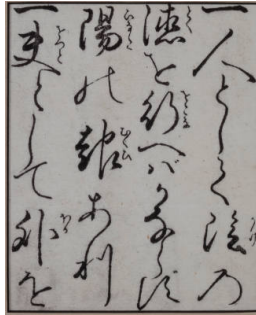 一人として陰の
徳を行へばかならず
陽の報あり
一夫として外を